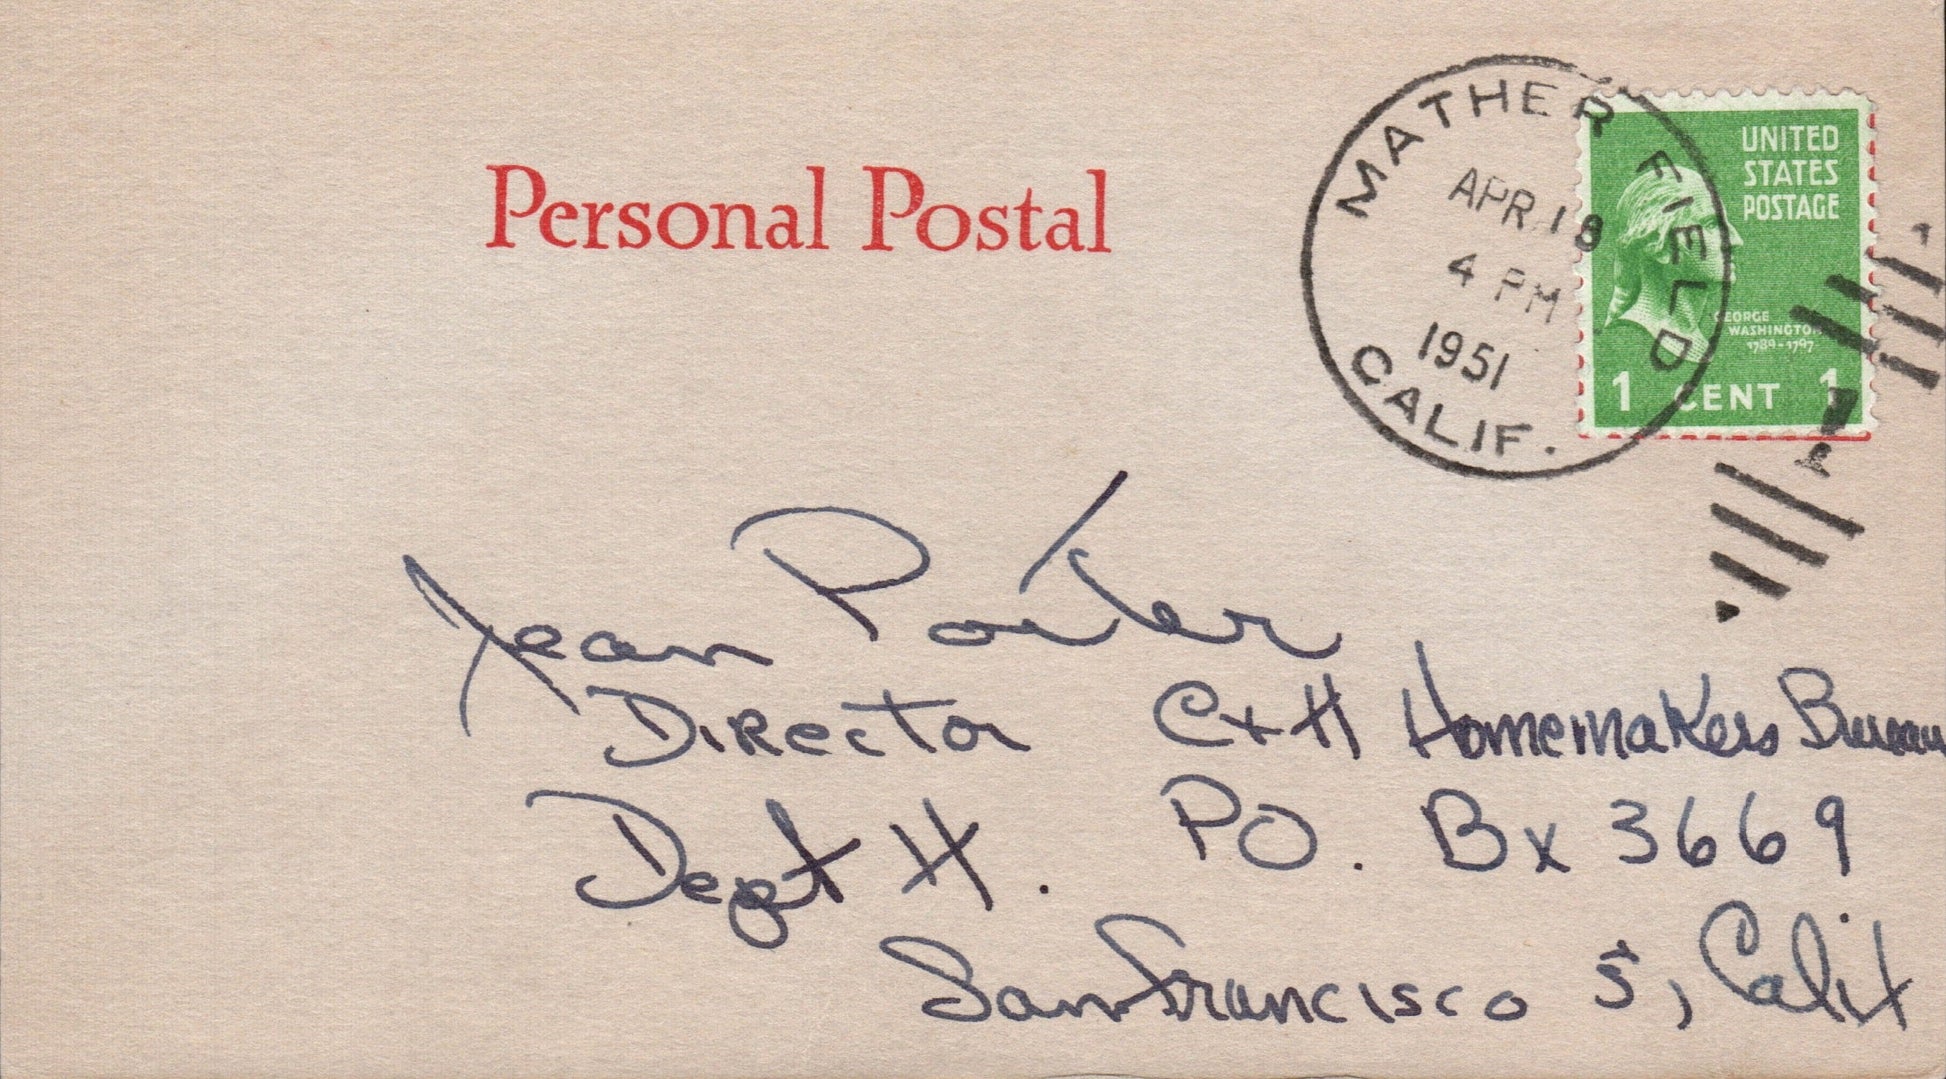 Personal Postal
MATHER FIELD
APR 18
4 PM
1951
CALIF.
UNITED
STATES
POSTAGE
GEORGE
WASHINGTON
1789-1797
1 CENT 1
Jean Porter
Director C+H Homemakers Bureau
Dept H. PO. Bx 3669
San Francisco 5, Calif